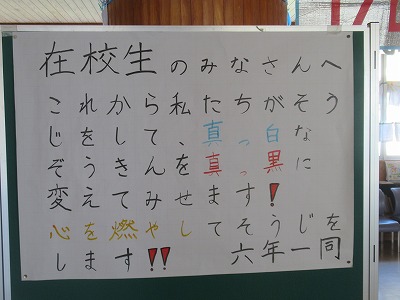 在校生のみなさんへ
これから私たちがそう
じをして、真っ白な
ぞうきんを真っ黒に
変えてみせます!
心を燃やしてそうじを
します!! 六年一同